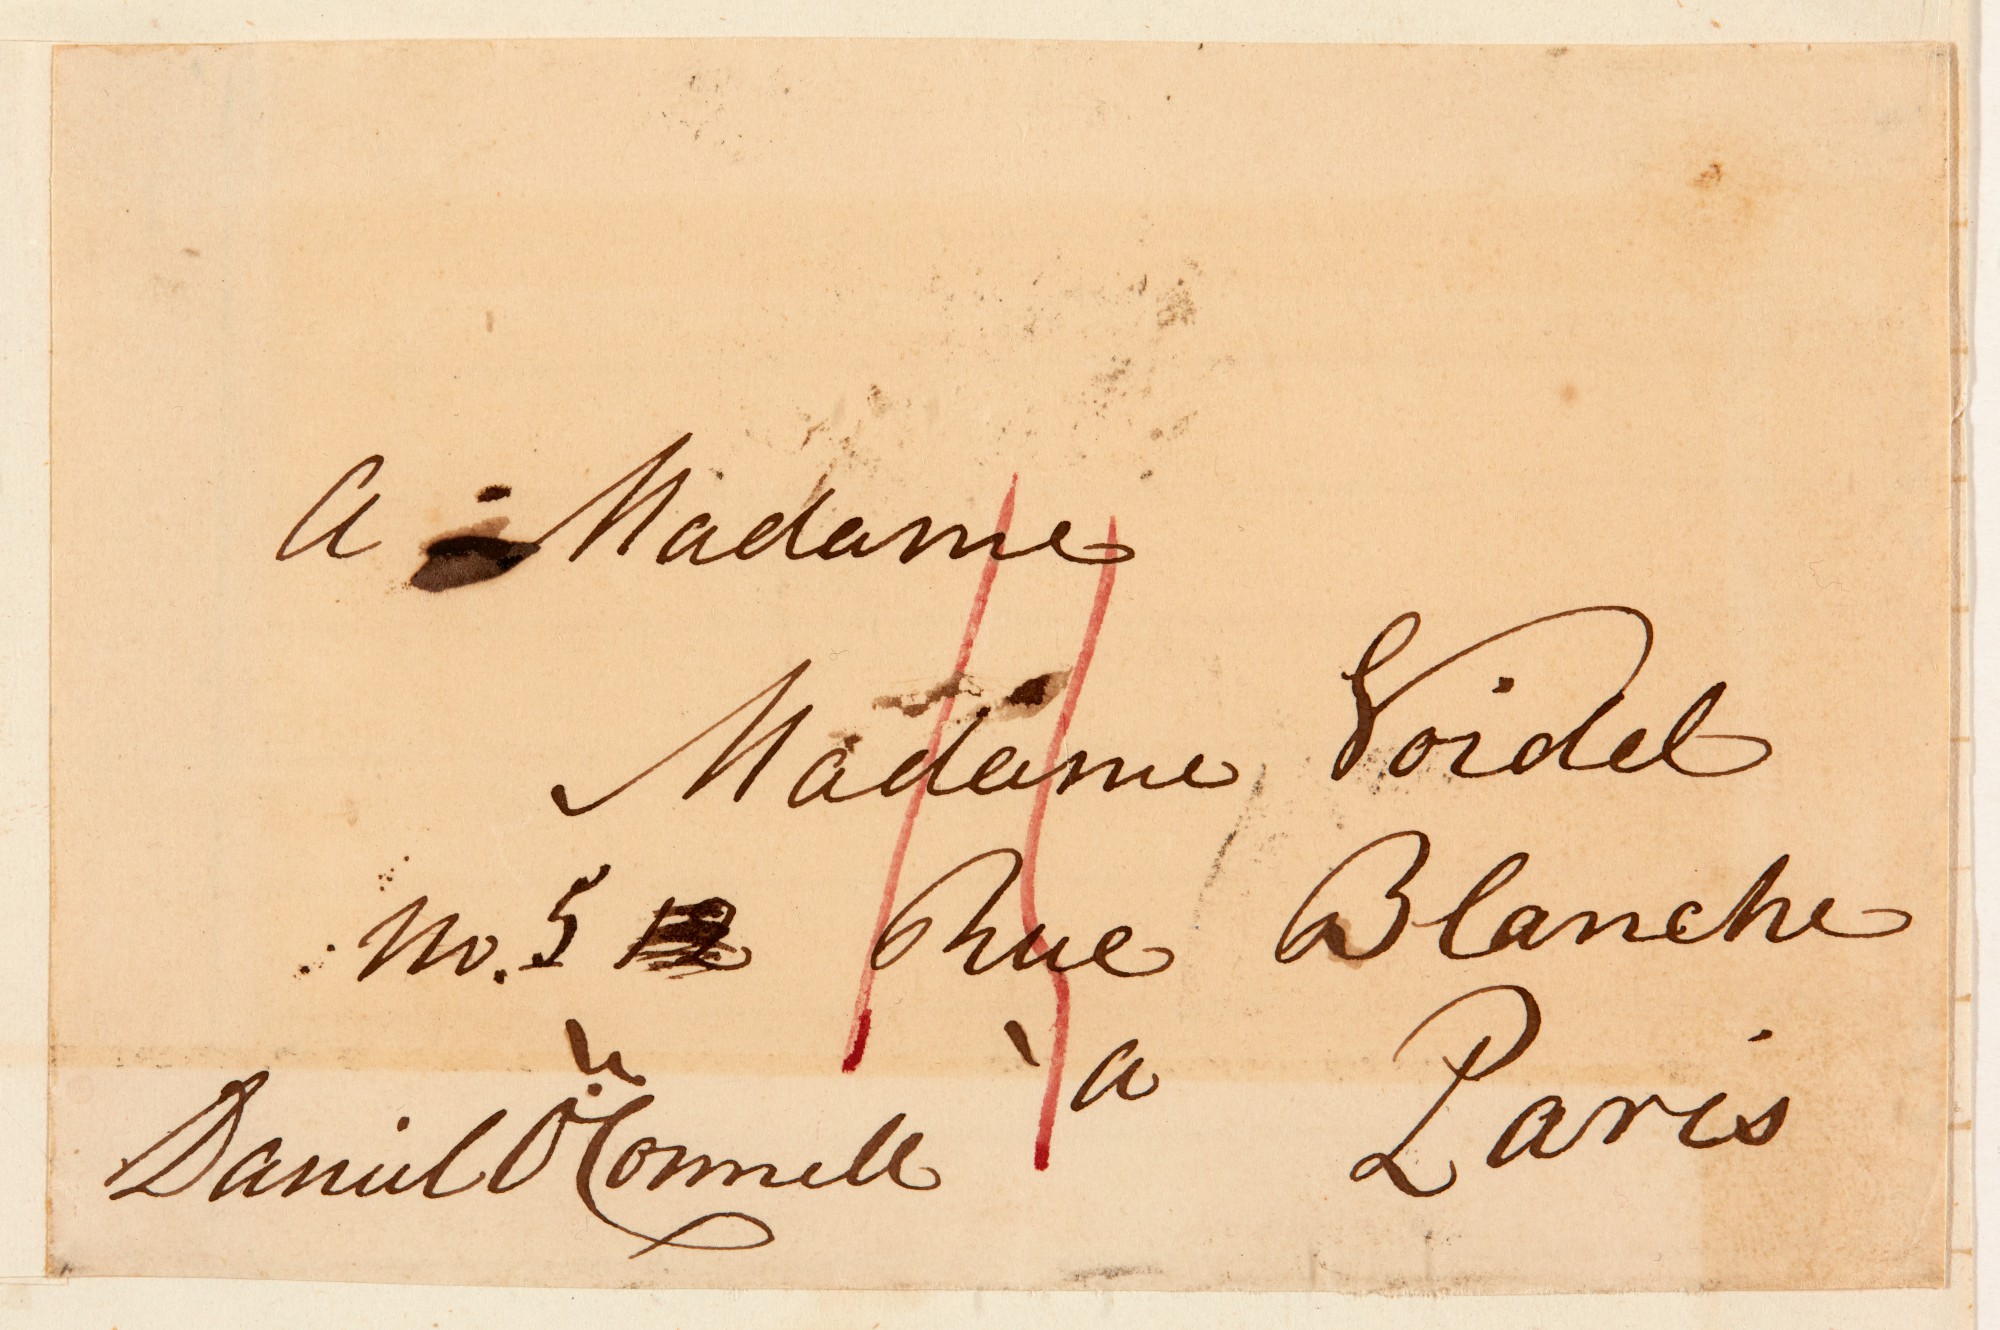 A Madame
Madame Voidel
No. 5 12 Rue Blanche
à Paris
Daniel O'Connell